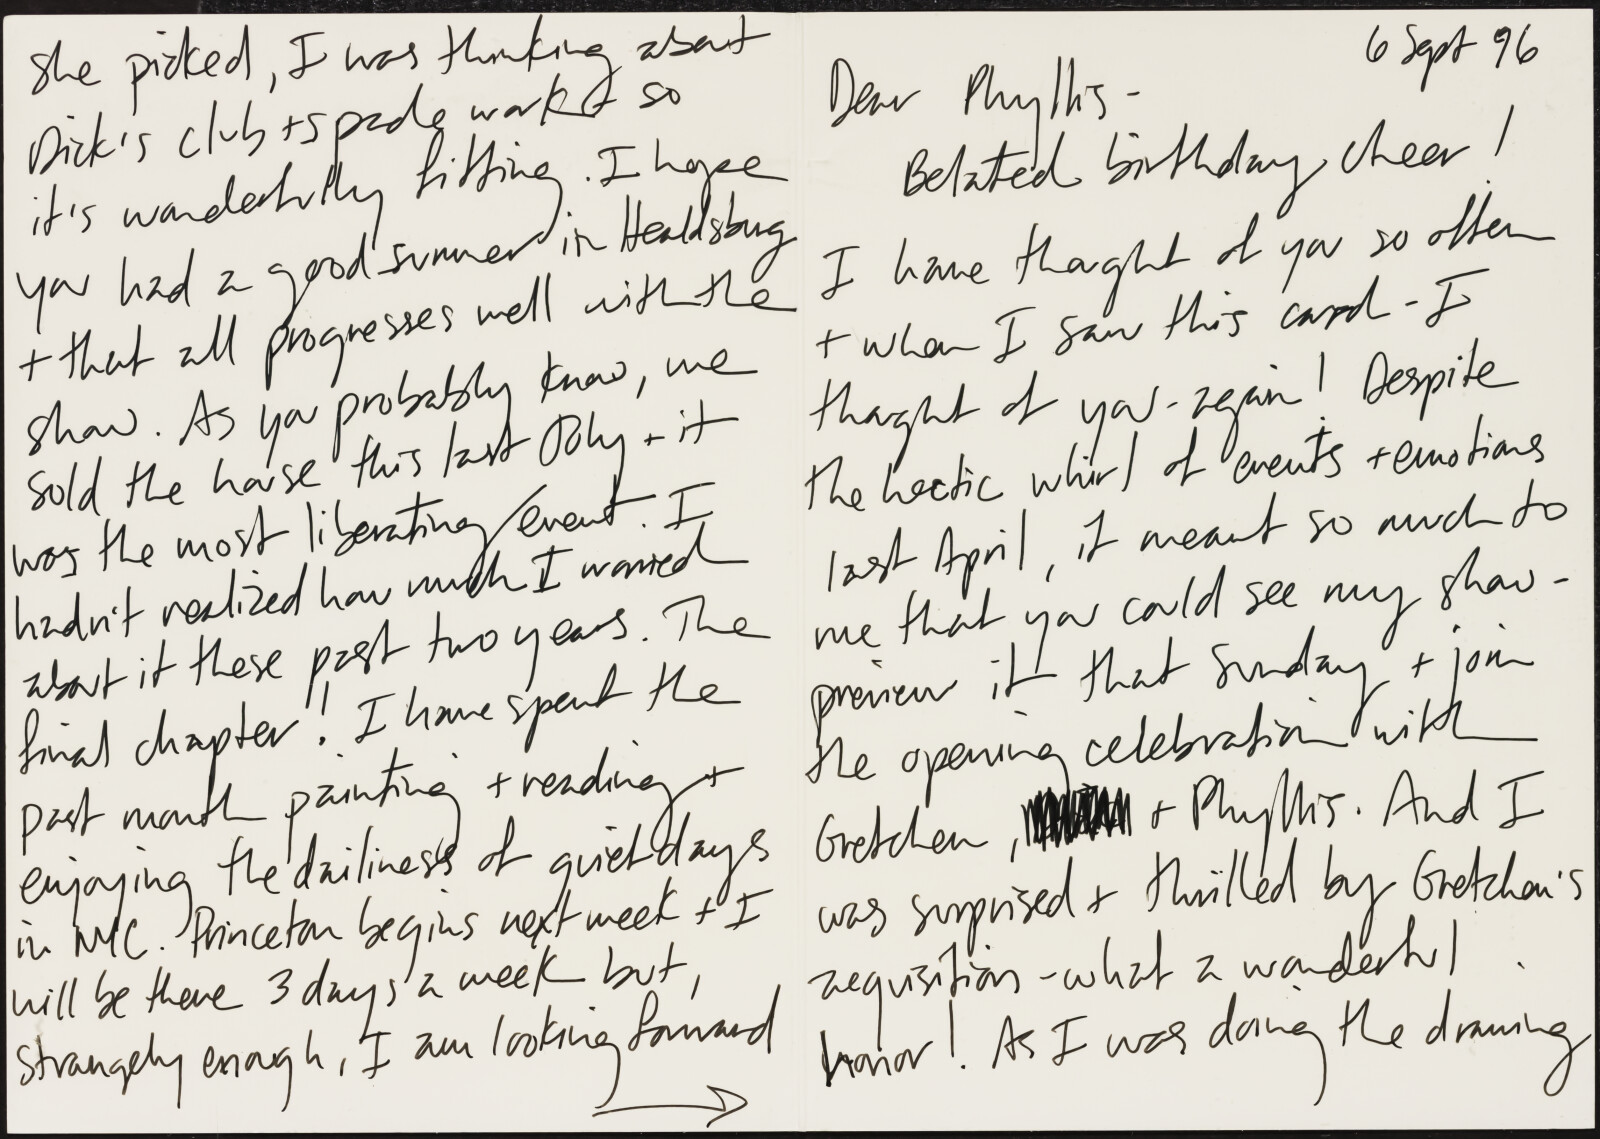 6 Sept 96
Dear Phyllis -
Belated birthday cheer!
I have thought of you so often
+ when I saw this card - I
thought of you - again! Despite
the hectic whirl of events + emotions
last April, it meant so much to
me that you could see my show -
preview it that Sunday + join
the opening celebration with
Gretchen, + Phyllis. And I
was surprised + thrilled by Gretchen's
acquisition - what a wonderful
honor! As I was doing the drawing
she picked, I was thinking about
Dick's club + spade work & so
it's wonderfully fitting. I hope
you had a good summer in Healdsburg
+ that all progresses well with the
show. As you probably know, we
sold the house this last July + it
was the most liberating event. I
hadn't realized how much I worried
about it these past two years. The
final chapter! I have spent the
past month painting + reading +
enjoying the dailiness of quiet days
in NYC. Princeton begins next week + I
will be there 3 days a week but,
strangely enough, I am looking forward